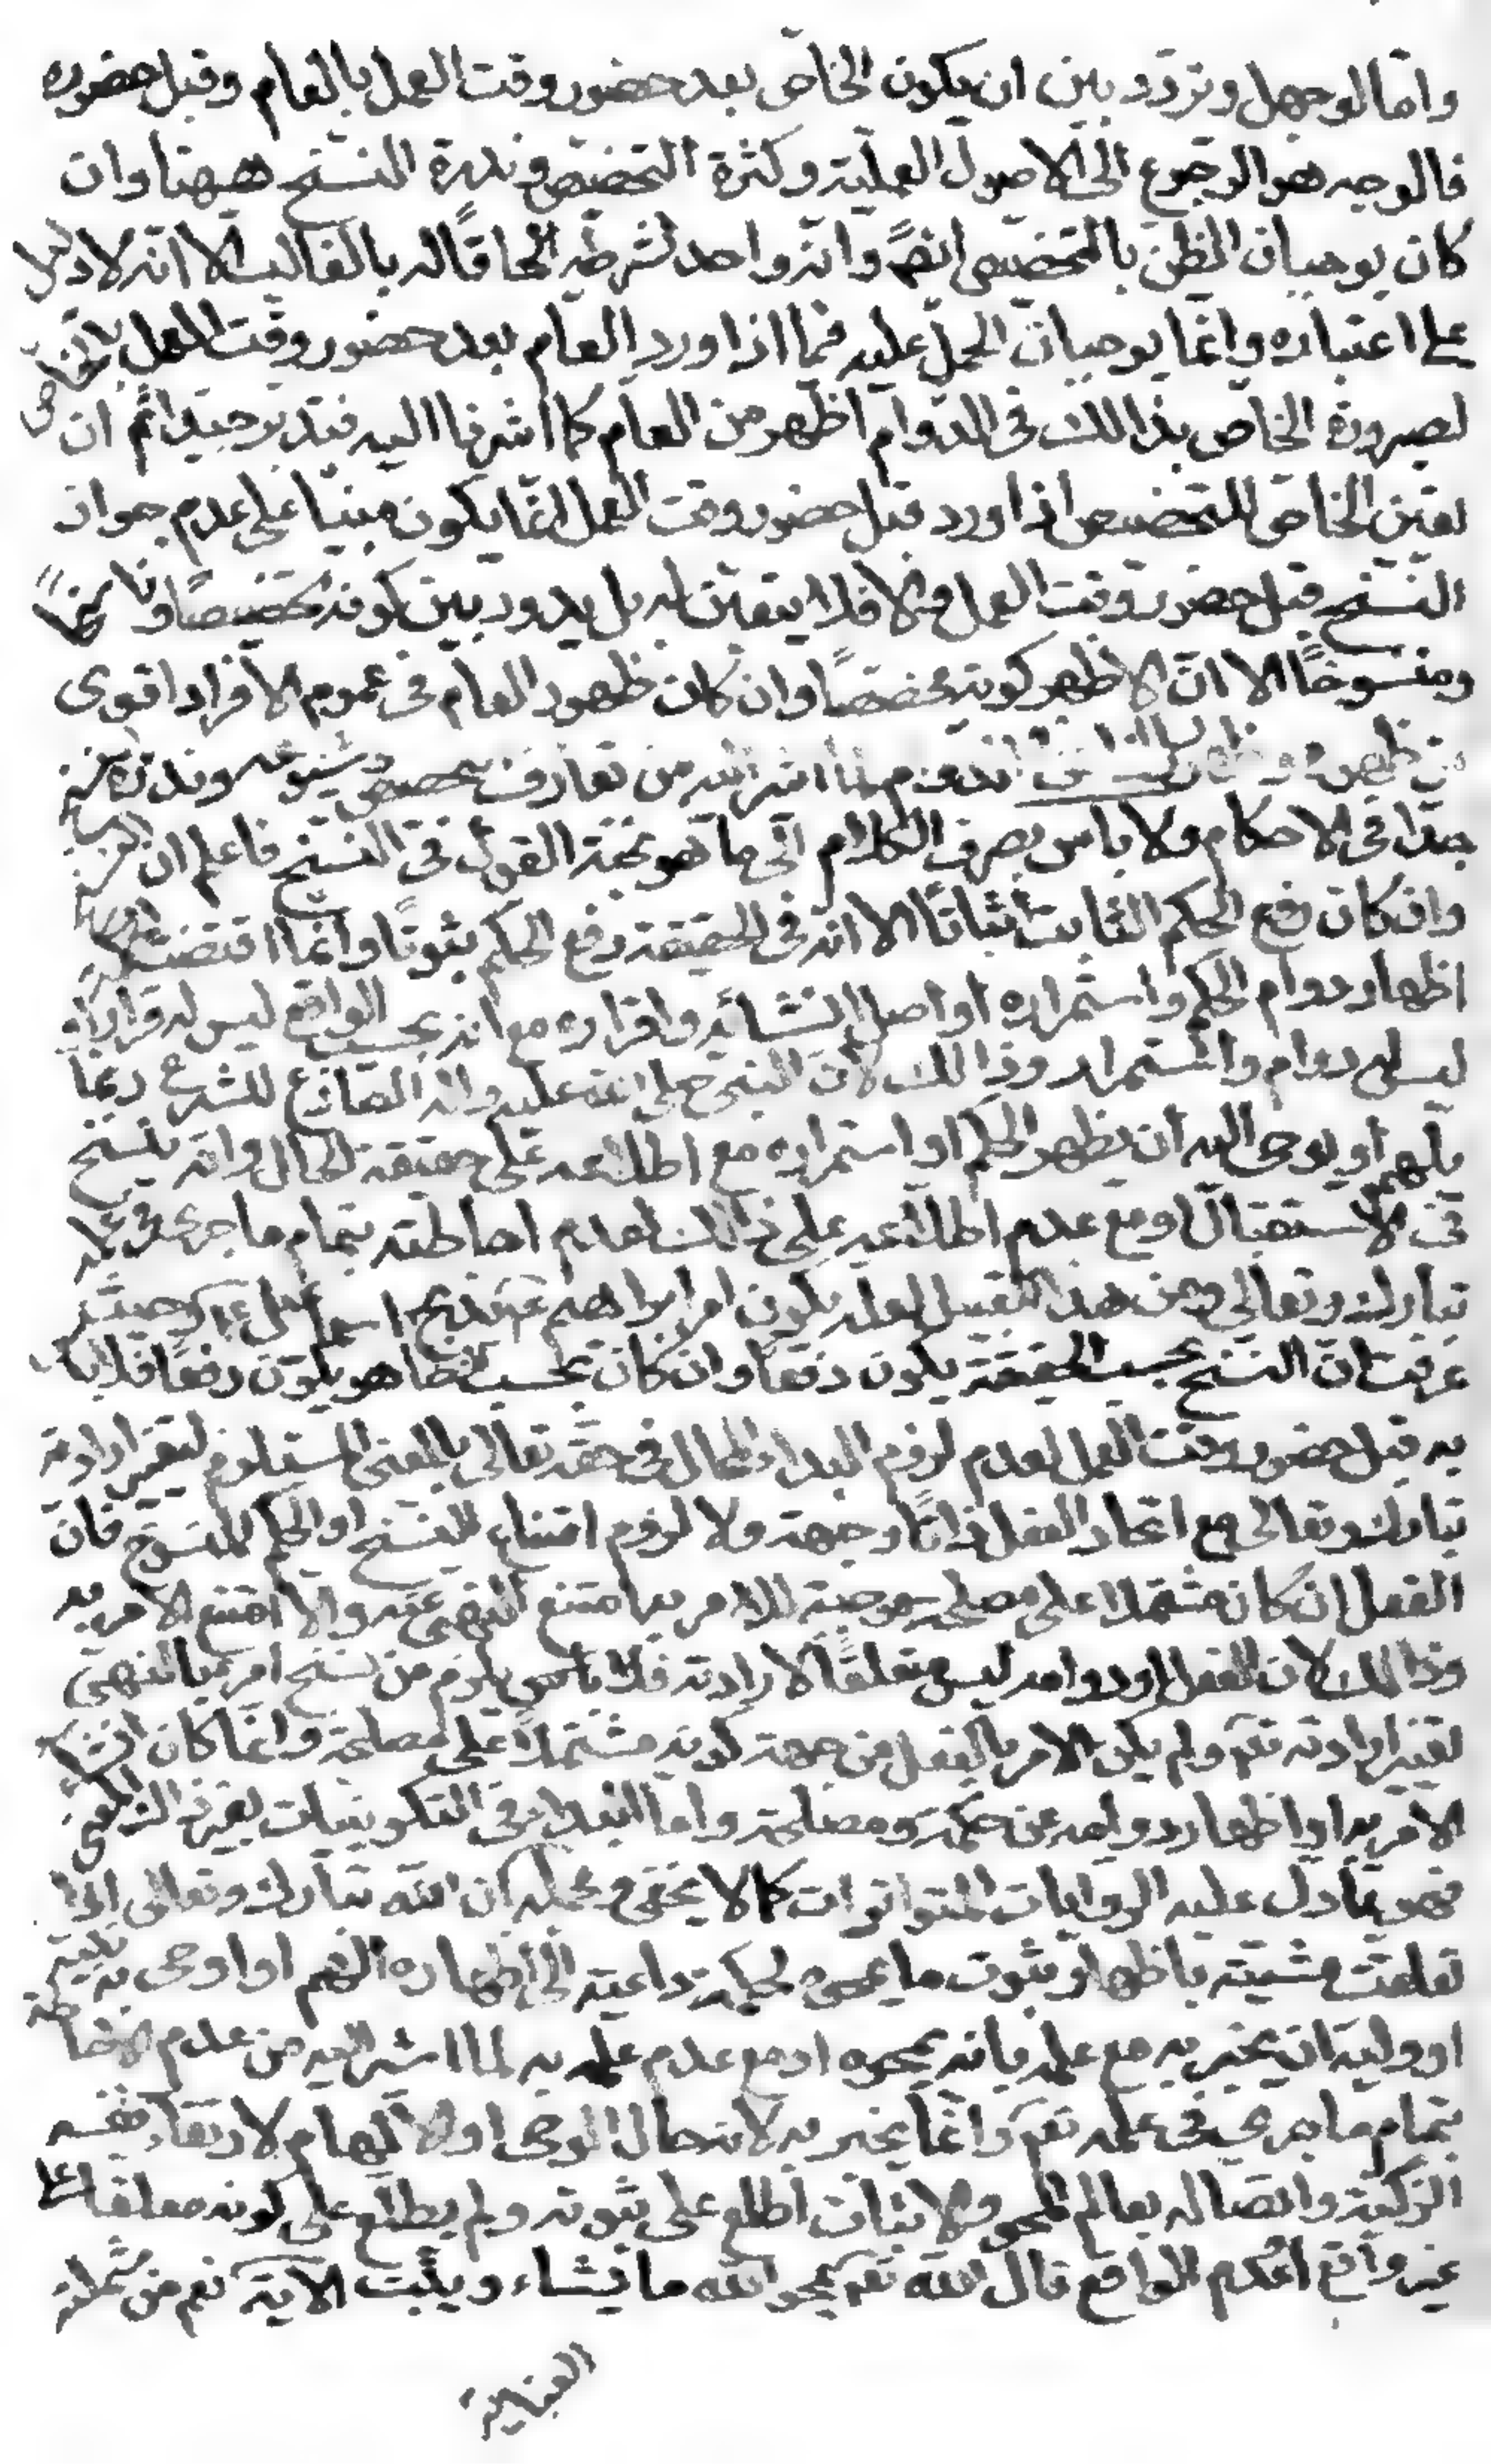 واما لو جهل وتردد بين ان يكون الخاص بعد حضور وقت العمل بالعام وقبل حضوره
فالوجه هو الرجوع الى الاصول العملية وكثرة التخصيص وندرة النسخ ههنا وان
كان يوجبان الظن بالتخصيص ايضا وانه واجد لشرطه الحاقا له بالغالب الا انه لا دليل
على اعتباره وانما يوجبان الحمل عليه فيما اذا ورد العام بعد حضور وقت العمل بالخاص
لصيرورة الخاص بذالك في الدوام اظهر من العام كما اشرنا اليه فتدبر جيدا ثم ان
تعين الخاص للتخصيص اذا ورد قبل حضور وقت العمل انما يكون مبنيا على عدم جواز
النسخ قبل حضور وقت العمل والا فلا يتعين له بل يدور بين كونه مخصصا وناسخا
ومنسوخا الا ان الاظهر كونه مخصصا وان كان ظهور العام في عموم الافراد اقوى
من ظهوره و الخاص في الدوام لما اشير اليه من تعارف التخصيص وشيوعه وندرة النسخ
جدا في الاحكام ولا باس بصرف الكلام الى ما هو نخبة القول في النسخ فاعلم ان النسخ
وان كان رفع الحكم الثابت اثباتا الا انه في الحقيقة دفع الحكم ثبوتا وانما اقتضت الحكمة
اظهار دوام الحكم واستمراره او اصل انشائه واقراره مع انه بحسب الواقع ليس له قرار او
ليس له دوام واستمرار وذالك لان النبي صلى الله عليه واله الصادع للشرع ربما
يلهم او يوحى اليه ان يظهر الحكم او استمراره مع اطلاعه على حقيقة الحال وانه ينسخ
في الاستقبال او مع عدم اطلاعه على ذالك لعدم احاطته بتمام ما جرى في علمه
تبارك وتعالى ومن هذا القبيل لعله يكون امر ابراهيم بذبح اسماعيل وحيث
عرفت ان النسخ بحسب الحقيقة يكون دفعا وان كان بحسب الظاهر يكون رفعا فلا باس
به قبل حضور وقت العمل لعدم لزوم البداء المحال في حقه تعالى بالمعنى المستلزم لتغير ارادته
تبارك وتعالى مع اتحاد الفعل ذاتا وجهة ولا لزوم امتناع النسخ او الحكم المنسوخ فان
الفعل ان كان مشتملا على مصلحة موجبة للامر به امتنع النهى عنه والا امتنع الامر به
وذالك لان الفعل او دوامه ليس متعلقا لارادته فلا يلزم من نسخ امره بالنهى
تغيير ارادته تع ولم يكن الامر بالفعل من جهة كونه مشتملا على مصلحة وانما كان انشاء
الامر به او اظهار دوامه عن حكمة ومصلحة واما البداء في التكوينيات بغير ذالك المعنى
فهو مما دل عليه الروايات المتواترات كما لا يخفى ومجمله ان الله تبارك وتعالى اذا
تعلقت مشيته باظهار ثبوت ما يمحوه لحكمة داعية الى اظهاره الهم او اوحى به نبيه
او وليه ان يخبر به مع علمه بانه يمحوه او مع عدم علمه به لما اشير اليه من عدم الاحاطة
بتمام ما جرى في علمه تع وانما يخبر به لانه حال الوحى او الالهام لارتقاء نفسه
الزكية واتصاله بعالم المحو والاثبات اطلع على ثبوته ولم يطلع على كونه معلقا على
غير واقع اعدم الواقع قال الله تع يمحو الله ما يشاء ويثبت الاية نعم من شملته
العناية